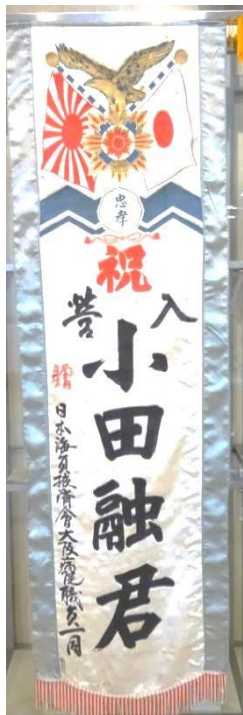 忠孝
祝
入營
小田融君
贈
日本海員掖濟會大阪病院職員一同